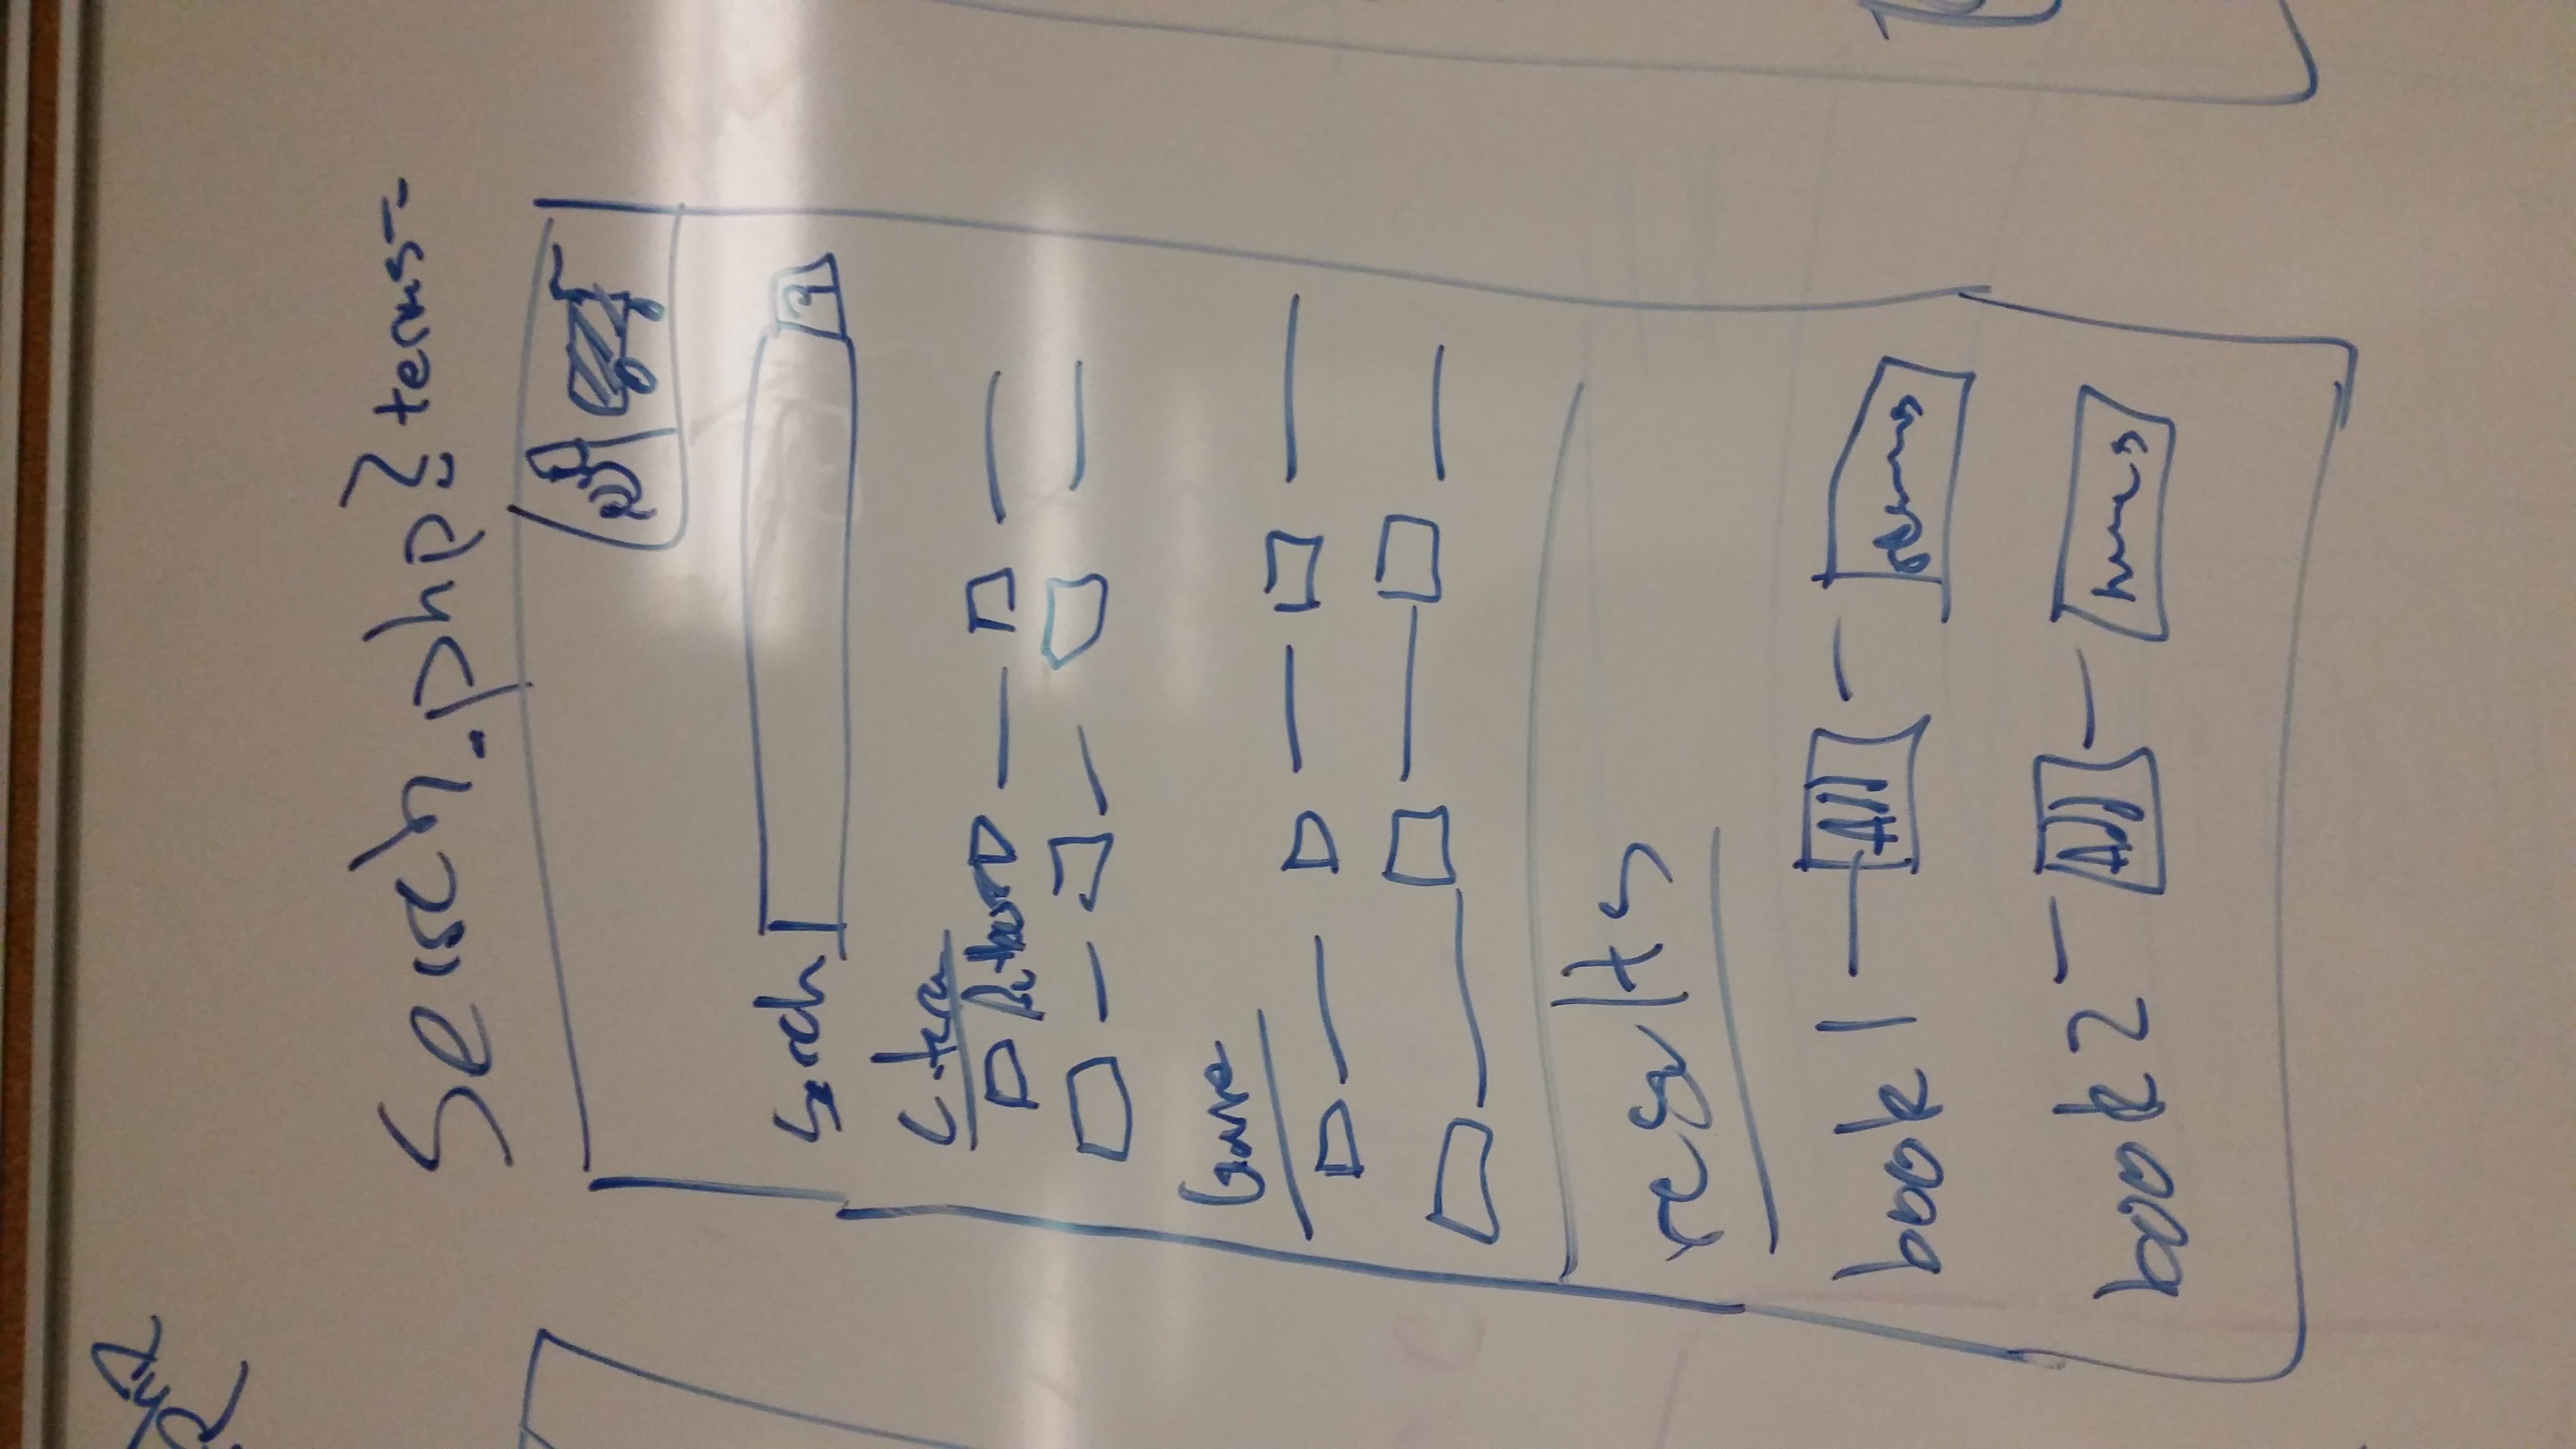 Search.php?terms=
Search
Criteria
Author
Genre
results
book 1 Add
book 2 Add